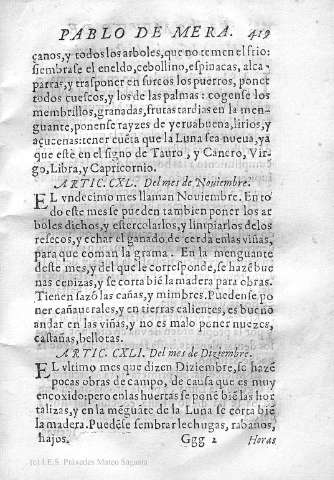 PABLO DE MERA. 419
çanos, y todos los arboles, que no temen el frio:
siembrase el eneldo, cebollino, espinacas, alca-
parras, y trasponer en surcos los puerros, poner
todos cuescos, y los de las palmas: cogense los
membrillos, granadas, frutas tardias en la men-
guante, ponense rayzes de yeruabuena, lirios, y
açucenas: tener cuẽta que la Luna sea nueua, ya
que estè en el signo de Tauro, y Cancro, Vir-
go, Libra, y Capricornio.
ARTIC. CXL. Del mes de Nouiembre.
EL vndecimo mes llaman Nouiembre. En to
do este mes se pueden tambien poner los ar
boles dichos, y estercolarlos, y limpiarlos de los
resecos, y echar el ganado de cerda en las viñas,
para que coman la grama. En la menguante
deste mes, y del que le corresponde, se hazẽ bue
nas cenizas, y se corta biẽ la madera para obras.
Tienen sazõ las cañas, y mimbres. Puedense po
ner cañauerales, y en tierras calientes, es bueno
andar en las viñas, y no es malo poner nuezes,
castañas, bellotas.
ARTIC. CXLI. Del mes de Diziembre.
EL vltimo mes que dizen Diziembre, se hazẽ
pocas obras de campo, de causa que es muy
encoxido; pero en las huertas se pone biẽ las hor
talizas, y en la mẽguãte de la Luna se corta biẽ
la madera. Puedẽse sembrar lechugas, rabanos,
hajos. Ggg 2 Horas
(c) I.E.S. Práxedes Mateo Sagasta